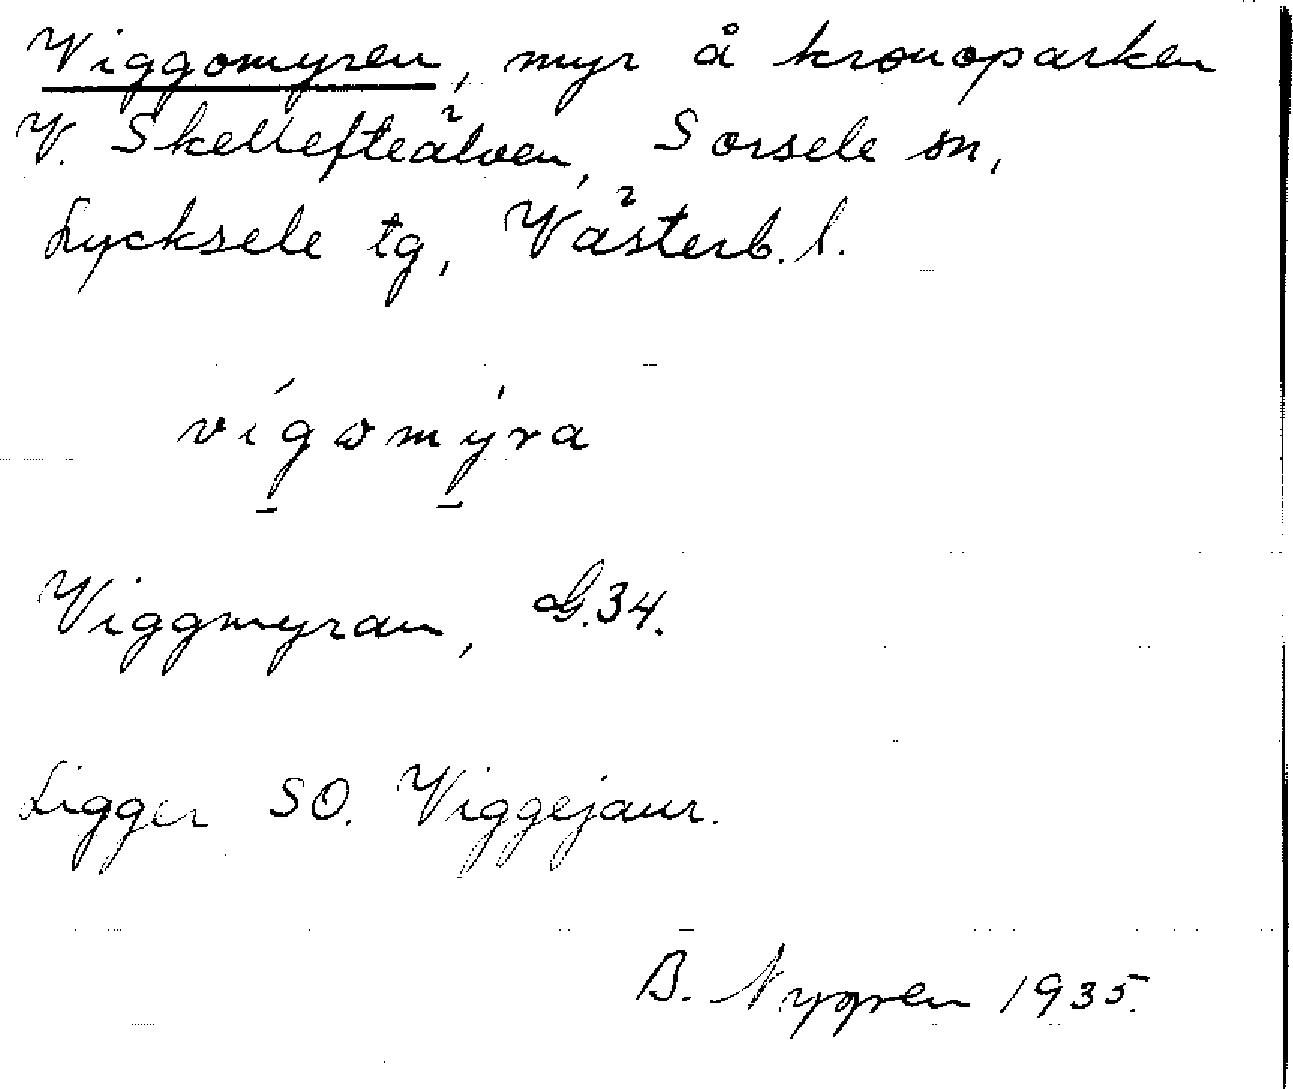 Viggomyren, myr å kronoparken
V. Skellefteälven, Sorsele sn,
Lycksele tg, Västerb. l.
vígωmýra
Viggmyran, G.34.
Ligger SO. Viggejaur.
B. Nygren 1935.